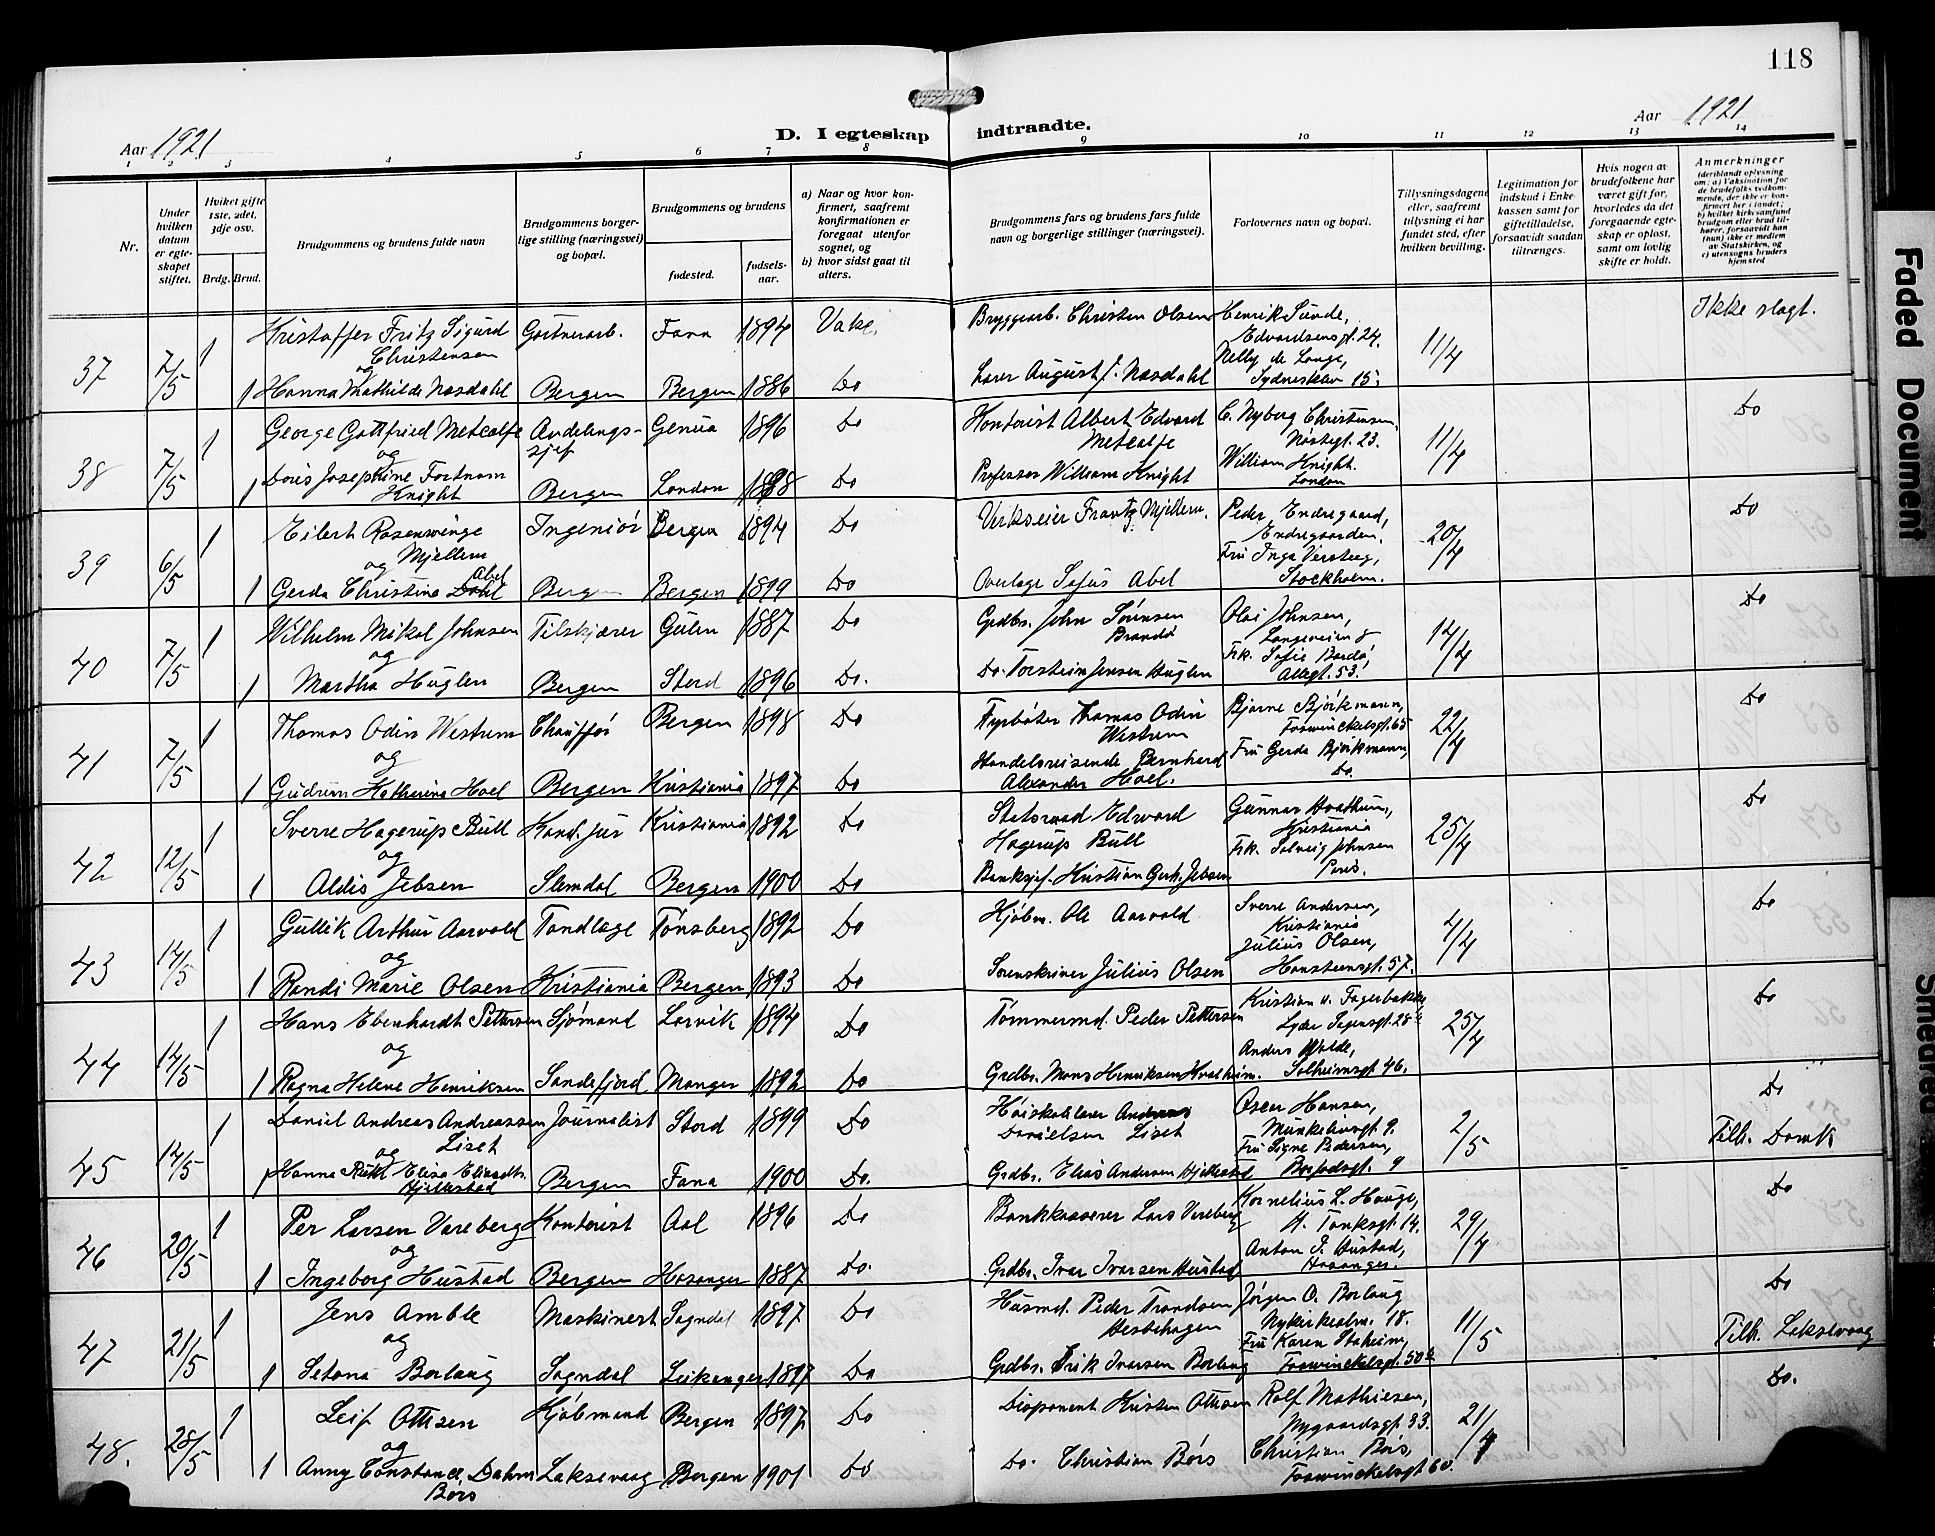 118
Aar 1921
D. I egteskap indtraadte.
Aar 1921
1 2 3 4 5 6 7 8 9 10 11 12 13 14
Nr.
Under hvilken datum er egteskapet stiftet.
Hvilket gifte 1ste, 2det, 3dje osv.
Brdg. Brud.
Brudgommens og brudens fulde navn
Brudgommens borgerlige stilling (næringsvei) og bopæl.
Brudgommens og brudens
fødested.
fødselsaar.
a) Naar og hvor konfirmert, saafremt konfirmationen er foregaat utenfor sognet, og
b) hvor sidst gaat til alters.
Brudgommens fars og brudens fars fulde navn og borgerlige stillinger (næringsvei).
Forlovernes navn og bopæl.
Tillysningsdagene eller, saafremt tillysning ei har fundet sted, efter hvilken bevilling.
Legitimation for indskud i Enkekassen samt for giftetilladelse, forsaavidt saadan tiltrænges.
Hvis nogen av brudefolkene har været gift før, hvorledes da det foregaaende egteskap er opløst, samt om lovlig skifte er holdt.
Anmerkninger
(deriblandt oplysning om: a) Vaksination for de brudefolks vedkommende, der ikke er konfirmert her i landet; b) hvilket kirkesamfund brudgom eller brud tilhører, forsaavidt han (hun) ikke er medlem av Statskirken, og c) utensogns bruders hjemsted
37 7/5 1 Kristoffer Fritz Sigurd Christensen Gartnerarb. Fana 1894 Bryggearb. Christen Olsen Henrik Sunde, Edvardsensgt. 24. 11/4 Ikke slegt.
og
1 Hanna Mathilde Næsdahl Bergen Bergen 1886 Do Lærer August J. Næsdahl Nelly de Lange, Sydneskleiv 15.
38 7/5 1 George Gottfried Metcalfe Avdelingssjef Genua 1896 Do Kontorist Albert Edvard Metcalfe C. Nyberg Christensen, Nøstegt. 23. 11/4 Do
og
1 Doris Josephine Fortnom Knight Bergen London 1898 Do Professor William Knight William Knight. London
39 6/5 1 Eilert Rosenvinge Mjellem Ingeniør Bergen 1894 Do Verkseier Frantz Mjellem. Peder Endregaard, Endregaarden. 20/4 Do
og
1 Gerda Christina Abel Bergen Bergen 1899 Do Overlæge Sofus Abel Fru Inga Versteeg, Stockholm.
40 7/5 1 Wilhelm Mikal Johnsen Tilskjærer Gulen 1887 Do Grdbr. John Sørensen Brandø Olai Johnsen, Langeveien 8 14/4 Do
og
1 Martha Huglen Bergen Stord 1896 Do. Do. Torstein Jensen Huglen Frk. Sofie Bardø, Allegt. 53.
41 7/5 1 Thomas Odin Westrum Chauffør Bergen 1898 Do Fyrbøter Thomas Odin Westrum Bjarne Bjørkmann, Foswinckelsgt. 65 22/4 Do
og
1 Gudrun Katherina Hoel Bergen Kristiania 1897 Do Handelsreisende Bernhard Alexander Hoel. Fru Gerda Bjørkmann, Do.
42 12/5 1 Sverre Hagerup Bull Kand. jur Kristiania 1892 Do Statsraad Edvard Hagerup Bull Gunnar Hvathum, Kristiania 25/4 Do
og
1 Aldis Jebsen Slemdal Bergen 1900 Do Banksjef. Kristian Gerh. Jebsen Frk. Solveig Johnsen Paris.
43 14/5 1 Gullik Arthur Aarvold Tandlæge Tønsberg 1892 Do Kjøbm. Ole Aarvold Sverre Andersen, Kristiania 4/4 Do
og
1 Randi Marie Olsen Kristiania Bergen 1893 Do Sorenskriver Julius Olsen Julius Olsen, Hansteensgt. 57.
44 14/5 1 Hans Ebenhardt Pettersen Sjømand Larvik 1894 Do Tømmermd. Peder Pettersen Kristian v. Fagerbakke Lyder Sagensgt. 28 25/4 Do
og
1 Ragna Helene Henriksen Sandefjord Manger 1892 Do Grdbr. Mons Henriksen Kvalheim. Anders Walde, Solheimsgt. 46.
45 14/5 1 Daniel Andreas Andreassen Liset Journalist Stord 1899 Do Høiskolelærer Andreas Danielsen Liset Oscar Hansen, Munkebivsgt. 9. 2/5 Do
Tilh. Domk
og
1 Hanna Rakel Elisa Eliasdtr. Hjellestad Bergen Fana 1900 Do. Grdbr. Elias Andersen Hjellestad Fru Signe Pedersen, 9
46 20/5 1 Per Larsen Vareberg Kontorist Aal 1896 Do Bankkasserer Lars Vareberg Kornelius L. Hauge, H. Tanksgt. 14. 29/4 Do
og
1 Ingeborg Hustad Bergen Hosanger 1887 Do. Grdbr. Ivar Ivarsen Hustad Anton I. Hustad, Hosanger.
47 21/5 1 Jens Amble Maskinest Sogndal 1897 Do Husmd. Peder Trondsen Hesbehagen Jørgen O. Borlaug Nykirkealm. 18. 11/5 Do
Tilh. Laksevaag
og
1 Setona Borlaug Sogndal Leikanger 1897 Do Grdbr. Erik Ivarsen Borlaug Fru Karen Staheim, Foswinckelsgt. 50
48. 28/5 1 Leif Ottesen Kjøbmand Bergen 1897 Do Disponent Kristen Ottesen Rolf Mathiesen, Nygaardsgt. 33. 21/4 Do.
og
1 Anny Constance Dahm Børs Laksevaag Bergen 1901 Do Do. Christian Børs Christian Børs, Foswinckelsgt 60.
Faded Document
Smeared